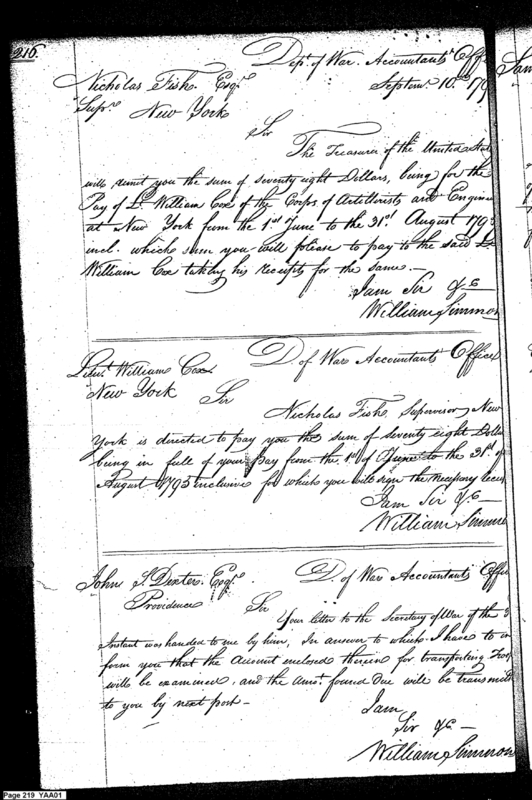 216.
Dept. of War. Accountants Off
Septemr. 10th. 179
Nicholas Fish Esqr.
Supr. New York
Sir
The Treasurer of the United Sta
will remit you the sum of seventy eight Dollars, being for the
Pay of Lt. William Cox of the Corps of Artillerists and Engine
at New York from the 1st June to the 31st. August 179
incl. which sum you will please to pay to the said Lt
William Cox taking his receipts for the same.—
I am Sir &c—
William Simmon
D. of War Accountants Office
Lieut. William Cox
New York
Sir
Nicholas Fish Supervisor New
York is directed to pay you the sum of seventy eight Dolla
being in full of your Pay from the 1st of June to the 31st. of
August 1795 inclusive for which you will sign the necessary recei
I am Sir &c—
William Simmo
D. of War Accountants Offic
John S. Dexter. Esqr.
Providence
Sir
Your letter to the Secretary of War of the 3
Instant was handed to me by him, In answer to which I have to in
form you that the Account enclosed therein for transporting
will be examined, and the Amot. found due will be transmit
to you by next post—
I am
Sir &c—
William Simmon
Page 219 YAA01